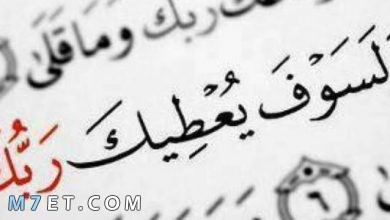 ربك وما قلى
لسوف يعطيك ربك
٦
M7ET.COM